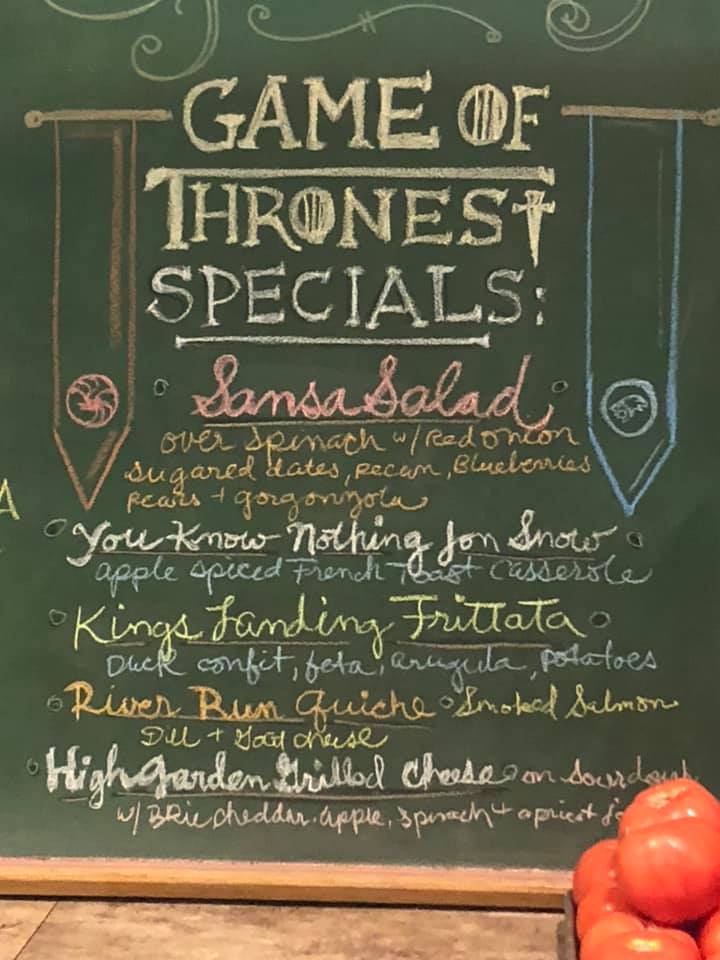 GAME OF
THRONES
SPECIALS:
Sansa Salad
over spinach w/ red onion
sugared dates, pecan, Blueberries
pears + gorgonzola
You Know Nothing Jon Snow
apple spiced French Toast Casserole
Kings Landing Frittata
Duck confit, feta, arugula, potatoes
River Run Quiche Smoked Salmon
Dill + Goat cheese
High Garden Grilled Cheese on sourdough
w/ Brie cheddar, apple, spinach + apricot
A